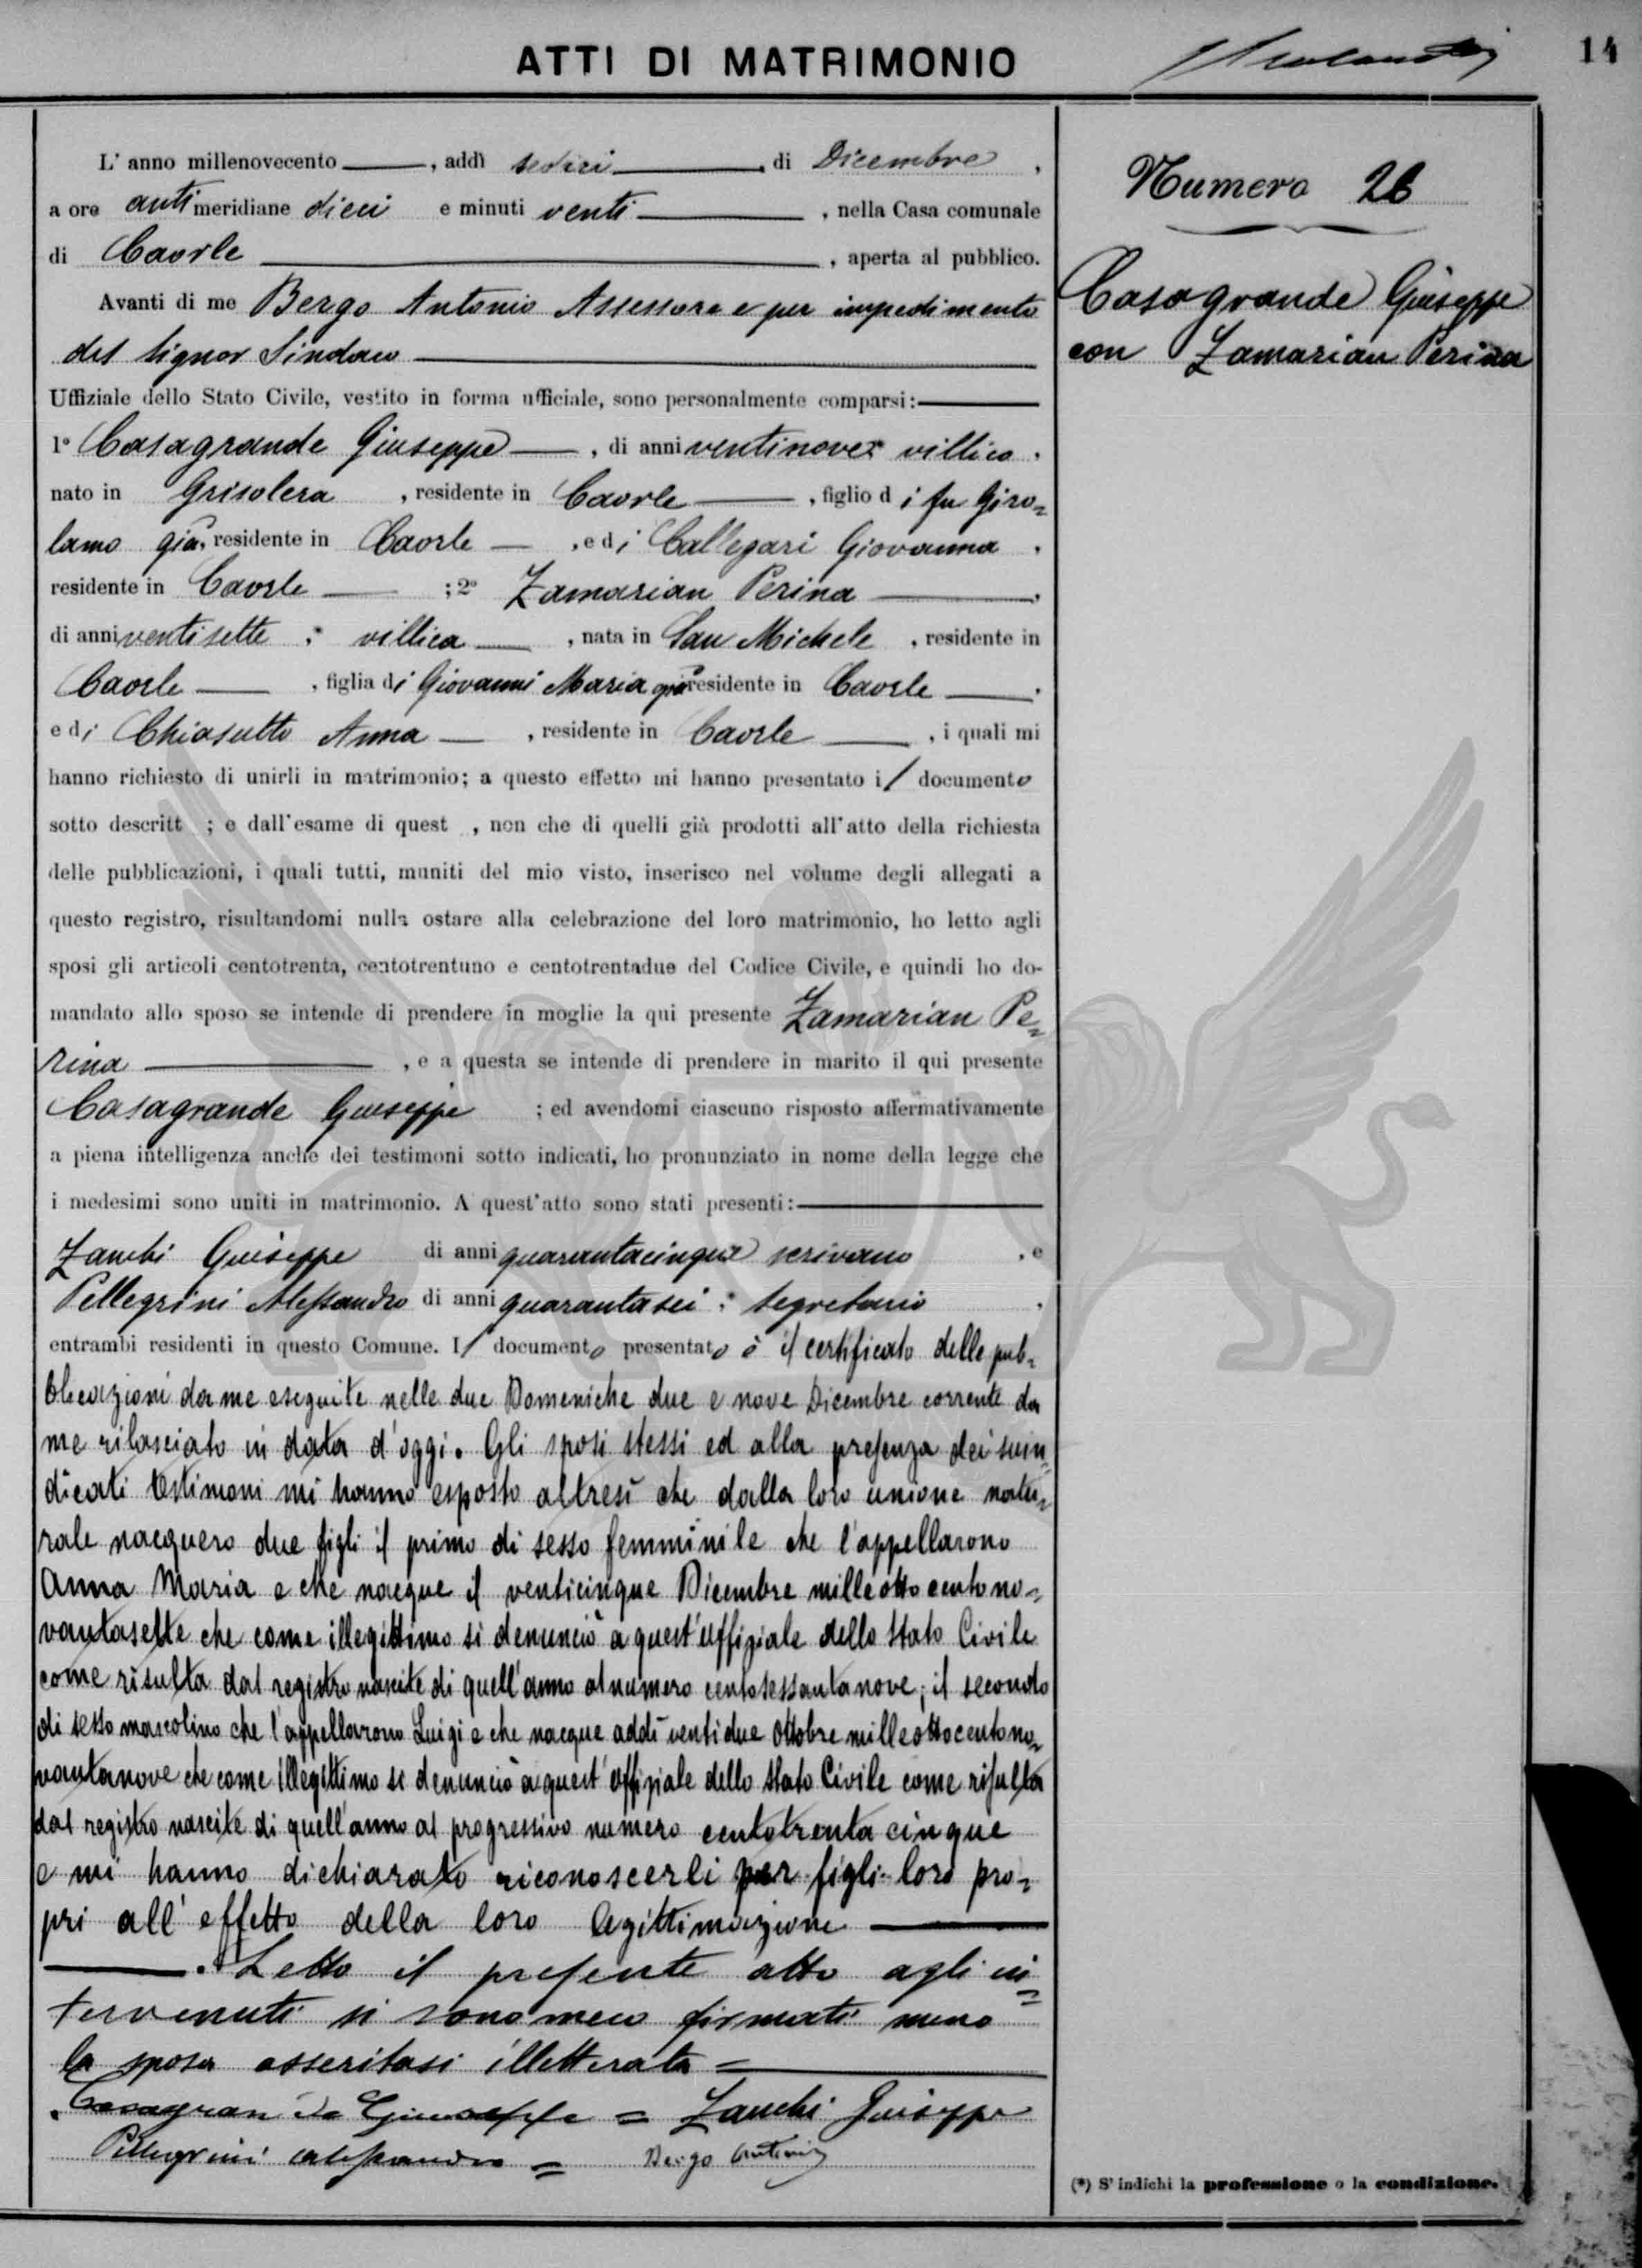 ATTI DI MATRIMONIO
14
L' anno millenovecento , addì sedici di Dicembre ,
a ore antimeridiane dieci e minuti venti , nella Casa comunale
di Caorle , aperta al pubblico.
Avanti di me Bergo Antonio Assessore e per impedimento
del Signor Sindaco
Uffiziale dello Stato Civile, vestito in forma ufficiale, sono personalmente comparsi:
1° Casagrande Giuseppe , di anni ventinove * villico ,
nato in Grisolera , residente in Caorle , figlio di fu Giro=
lamo già, residente in Caorle , e di Callegari Giovanna ,
residente in Caorle ; 2° Zamarian Perina ,
di anni ventisette ; * villica , nata in San Michele , residente in
Caorle , figlia di Giovanni Maria già residente in Caorle ,
e di Chiasutto Anna , residente in Caorle , i quali mi
hanno richiesto di unirli in matrimonio; a questo effetto mi hanno presentato il documento
sotto descritt ; e dall'esame di quest , non che di quelli già prodotti all'atto della richiesta
delle pubblicazioni, i quali tutti, muniti del mio visto, inserisco nel volume degli allegati a
questo registro, risultandomi nulla ostare alla celebrazione del loro matrimonio, ho letto agli
sposi gli articoli centotrenta, centotrentuno e centotrentadue del Codice Civile, e quindi ho do-
mandato allo sposo se intende di prendere in moglie la qui presente Zamarian Pe=
rina , e a questa se intende di prendere in marito il qui presente
Casagrande Giuseppe ; ed avendomi ciascuno risposto affermativamente
a piena intelligenza anche dei testimoni sotto indicati, ho pronunziato in nome della legge che
i medesimi sono uniti in matrimonio. A quest'atto sono stati presenti:
Zanchi Giuseppe di anni quarantacinque scrivano , e
Pellegrini Alessandro di anni quarantasei ; * segretario ,
entrambi residenti in questo Comune. Il documento presentato è il certificato delle pub=
blicazioni da me eseguite nelle due Domeniche due e nove Dicembre corrente da
me rilasciato in data d'oggi. Gli sposi stessi ed alla presenza dei suin=
dicati testimoni mi hanno esposto altresì che dalla loro unione natu=
rale nacquero due figli il primo di sesso femminile che l'appellarono
Anna Maria e che nacque il venticinque Dicembre milleottocentono=
vantasette che come illegittimo si denunciò a quest'uffiziale dello Stato Civile
come risulta dal registro nascite di quell'anno al numero centosessantanove; il secondo
di sesso mascolino che l'appellarono Luigi e che nacque addì ventidue Ottobre milleottocentono=
vantanove che come illegittimo si denunciò a quest'uffiziale dello Stato Civile come risulta
dal registro nascite di quell'anno al progressivo numero centotrentacinque
e mi hanno dichiarato riconoscerli per figli loro pro=
pri all'effetto della loro legittimazione
. Letto il presente atto agli in=
tervenuti si sono meco firmati meno
la sposa asseritasi illetterata =
Casagran de Giuseppe = Zanchi Giuseppe
Pellegrini Alessandro = Bergo Antonio
Numero 26
Casagrande Giuseppe
con Zamarian Perina
(*) S' indichi la professione o la condizione.